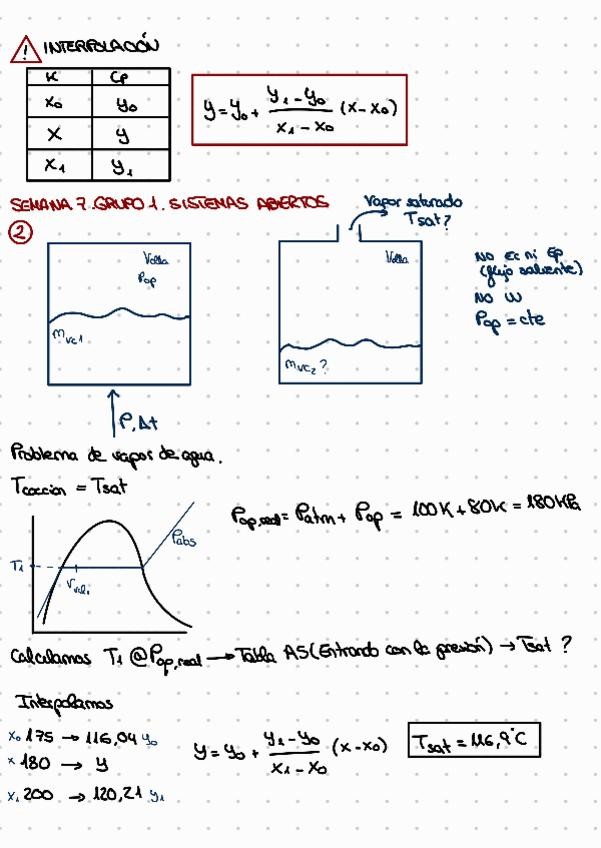 ! INTERPOLACIÓN
K Cp
x₀ y₀
x y
x₁ y₁
y = y₀ + (y₁ - y₀)/(x₁ - x₀) (x - x₀)
SEMANA 7. GRUPO 1. SISTEMAS ABIERTOS
2
Volla
Pop
mvc1
P, Δt
Vapor saturado
Tsat?
Volla
mvc2?
NO Ec ni Ep
(flujo saliente)
NO W
Pop = cte
Problema de vapor de agua.
Tcocción = Tsat
Pop,real = Patm + Pop = 100K + 80K = 180KPa
T1
Pabs
Calculamos T1 @Pop,real → Tabla A5 (Entrando con la presión) → Tsat?
Interpolamos
x₀ 175 → 116,04 y₀
x 180 → y
x₁ 200 → 120,21 y₁
y = y₀ + (y₁ - y₀)/(x₁ - x₀) (x - x₀)
Tsat = 116,9°C